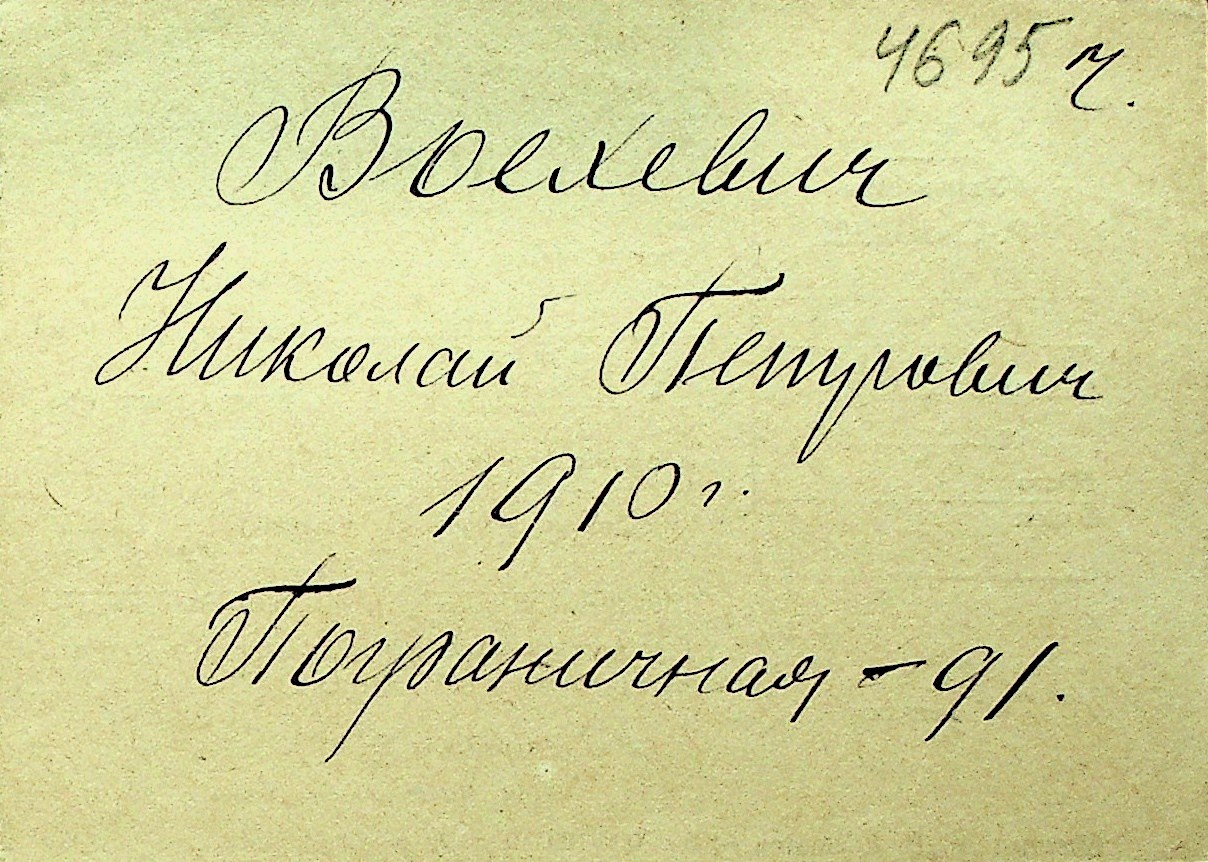 4695 ч.
Воехевич
Николай Петрович
1910 г.
Пограничная - 91.